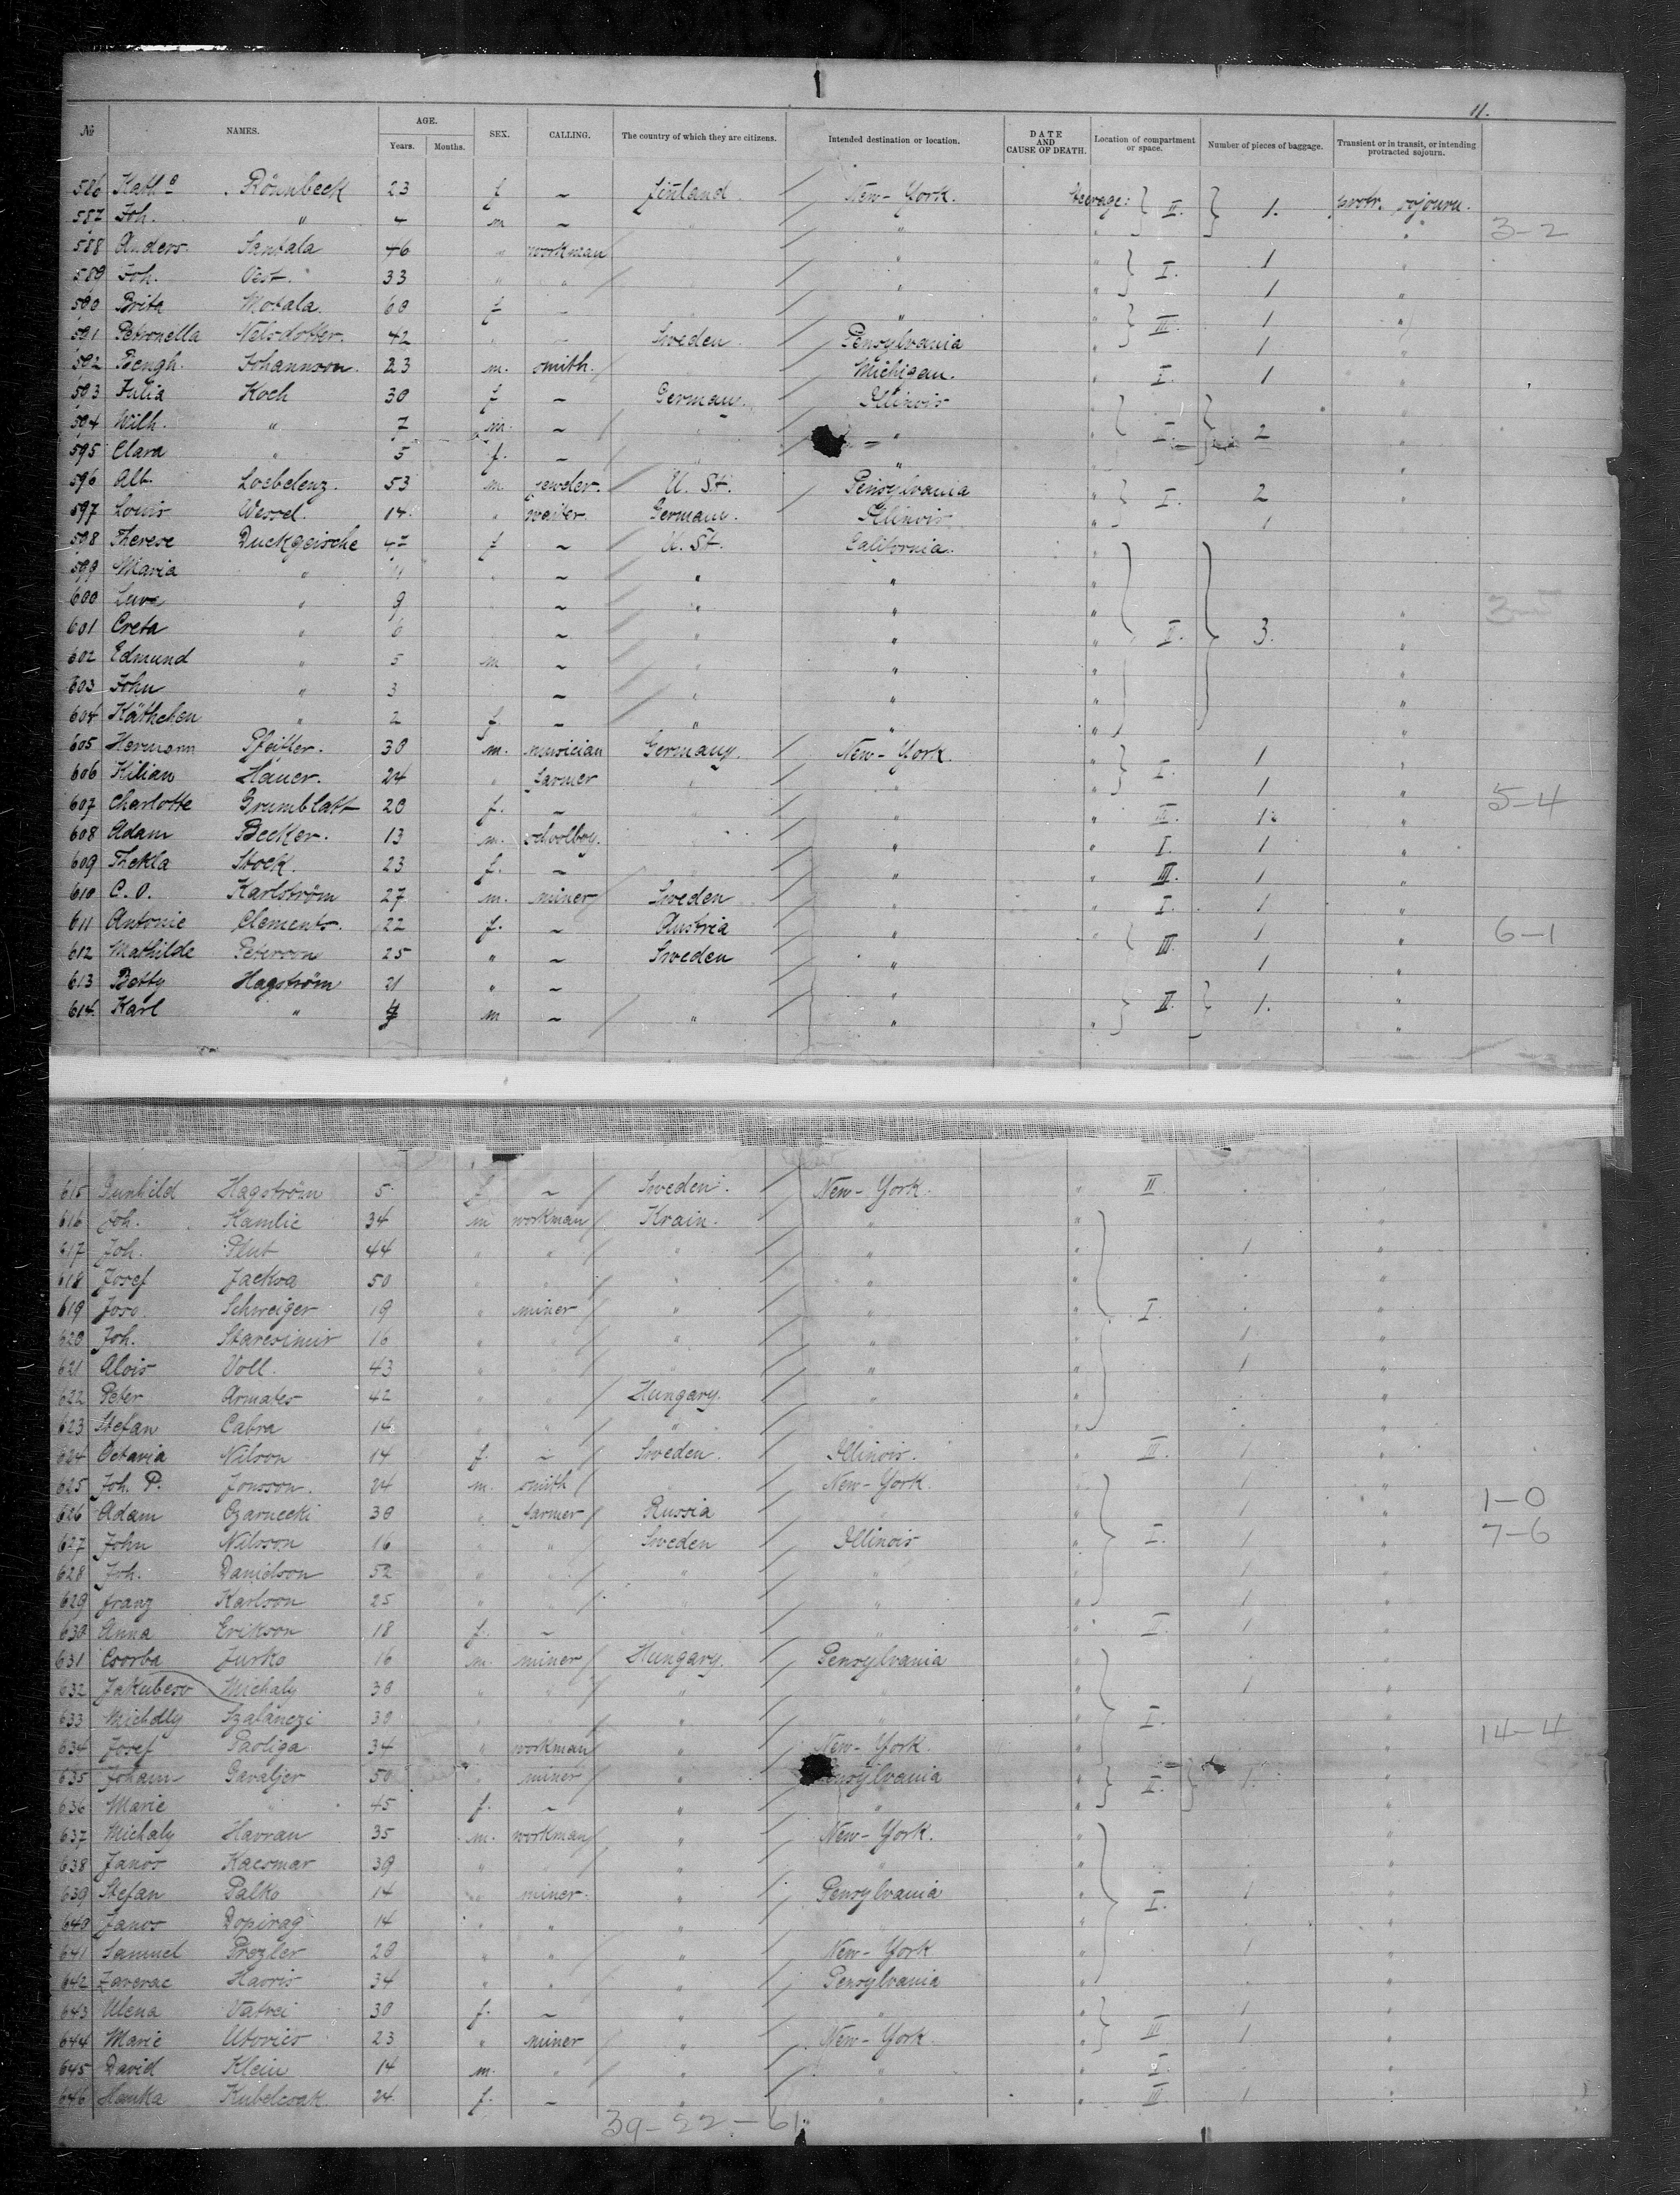 11.
№ NAMES. AGE. Years. Months. SEX. CALLING. The country of which they are citizens. Intended destination or location. DATE AND CAUSE OF DEATH. Location of compartment or space. Number of pieces of baggage. Transient or in transit, or intending protracted sojourn.
586 Kath.a Rönnbeck 23 f ~ Finland New-York. Steerage: II. 1. protr. sojourn.
587 Joh. " 4 m ~ " " " "
3-2
588 Anders Santala 46 " workman " " I. 1 "
589 Joh. Vest. 33 " " " " 1 "
590 Brita Motala 60 f ~ " " III. 1 "
591 Petronella Nelsdotter. 42 " ~ Sweden Pensylvania " 1 "
592 Bengh. Johannson. 23 m. smith. Michigan. " I. 1 "
593 Julia Koch 30 f ~ German. Illinois " "
594 Wilh. " 7 m. ~ " " " I. 2 "
595 Clara " 5 f. ~ " " " "
596 Alb. Loebelenz. 53 m jeweler. U. St. Pensylvania " I. 2 "
597 Louis Wessel. 14 " waiter. German. Illinois " 1 "
598 Therese Duckgeische 47 f ~ U. St. California. "
599 Maria " 11 " ~ " " "
600 Luve " 9 ~ " " " "
601 Creta " 6 ~ " " " II. 3. "
602 Edmund " 5 m ~ " " " "
603 John " 3 ~ " " " "
604 Käthchen " 2 f. ~ " " " "
605 Hermann Pfeiffer. 30 m. musician Germany. New-York. " 1 "
606 Kilian Hauer. 24 " farmer " " " I. 1 "
5-4
607 Charlotte Grumblatt 20 f. ~ " " " III. 1 "
608 Adam Becker. 13 m. schoolboy. " " " I. 1 "
609 Thekla Stock. 23 f. ~ " " III. 1 "
610 C. O. Karlström 27 m. miner Sweden " " I. 1 "
611 Antonie Clements. 22 f. ~ Austria " " III. 1 "
6-1
612 Mathilde Peterson 25 " ~ Sweden " 1 "
613 Betty Hagström 21 " ~ " II. 1. "
614 Karl " m ~ " " " "
615 Gunhild Hagström 5 f. ~ Sweden. New-York. " II
616 Joh. Kamlic 34 m workman Krain. " " "
617 Joh. Plut 44 " " " " " 1 "
618 Josef Jacksa 50 " " " " " "
619 Joso Schweiger 19 " miner " " " I. "
620 Joh. Staresimir 16 " " " 1 "
621 Alois Voll. 43 " " " 1 "
622 Peter Armates 42 " " Hungary. " " "
623 Stefan Cabra 14 " " " " " "
624 Octavia Nilson 14 f. ~ Sweden. Illinois. " III. 1 "
625 Joh. P. Jonsson. 24 m. smith New-York. " 1 "
1-0
626 Adam Czarnecki 30 " farmer Russia " " 1 "
7-6
627 John Nilsson 16 " " Sweden Illinois " I. 1 "
628 Joh. Danielson 52 " " " " 1 "
629 Franz Karlson 25 " " " " " 1 "
630 Anna Erikson 18 f. ~ " " I. 1 "
631 Csorba Jurko 16 m. miner Hungary. Pensylvania " "
632 Jakubesv Michaly 30 " " " " 1 "
633 Michdly Szalánczi 30 " " " " I. "
14-4
634 Josef Paoliga 34 " workman " New-York. " "
635 Johann Gavaljer 50 " miner " Pensylvania " II. 1. "
636 Marie " 45 f. ~ " " " "
637 Michaly Havran 35 m. workman " New-York. " "
638 Janos Kacsmar 39 " " " " " "
639 Stefan Palko 14 " miner. " Pensylvania " I. 1 "
640 Janos Dopirag 14 " " " " " "
641 Samuel Prezler 20 " " " New-York 1 "
642 Zaverac Havris 34 " " " Pensylvania " "
643 Ulena Vatrei 30 f. ~ " " " 1 "
644 Marie Utovics 23 " miner " New-York " III 1 "
645 David Klein 14 m. " " " " I. "
646 Hanka Kubelcsak 24. f. ~ " " " III 1 "
39-22-61